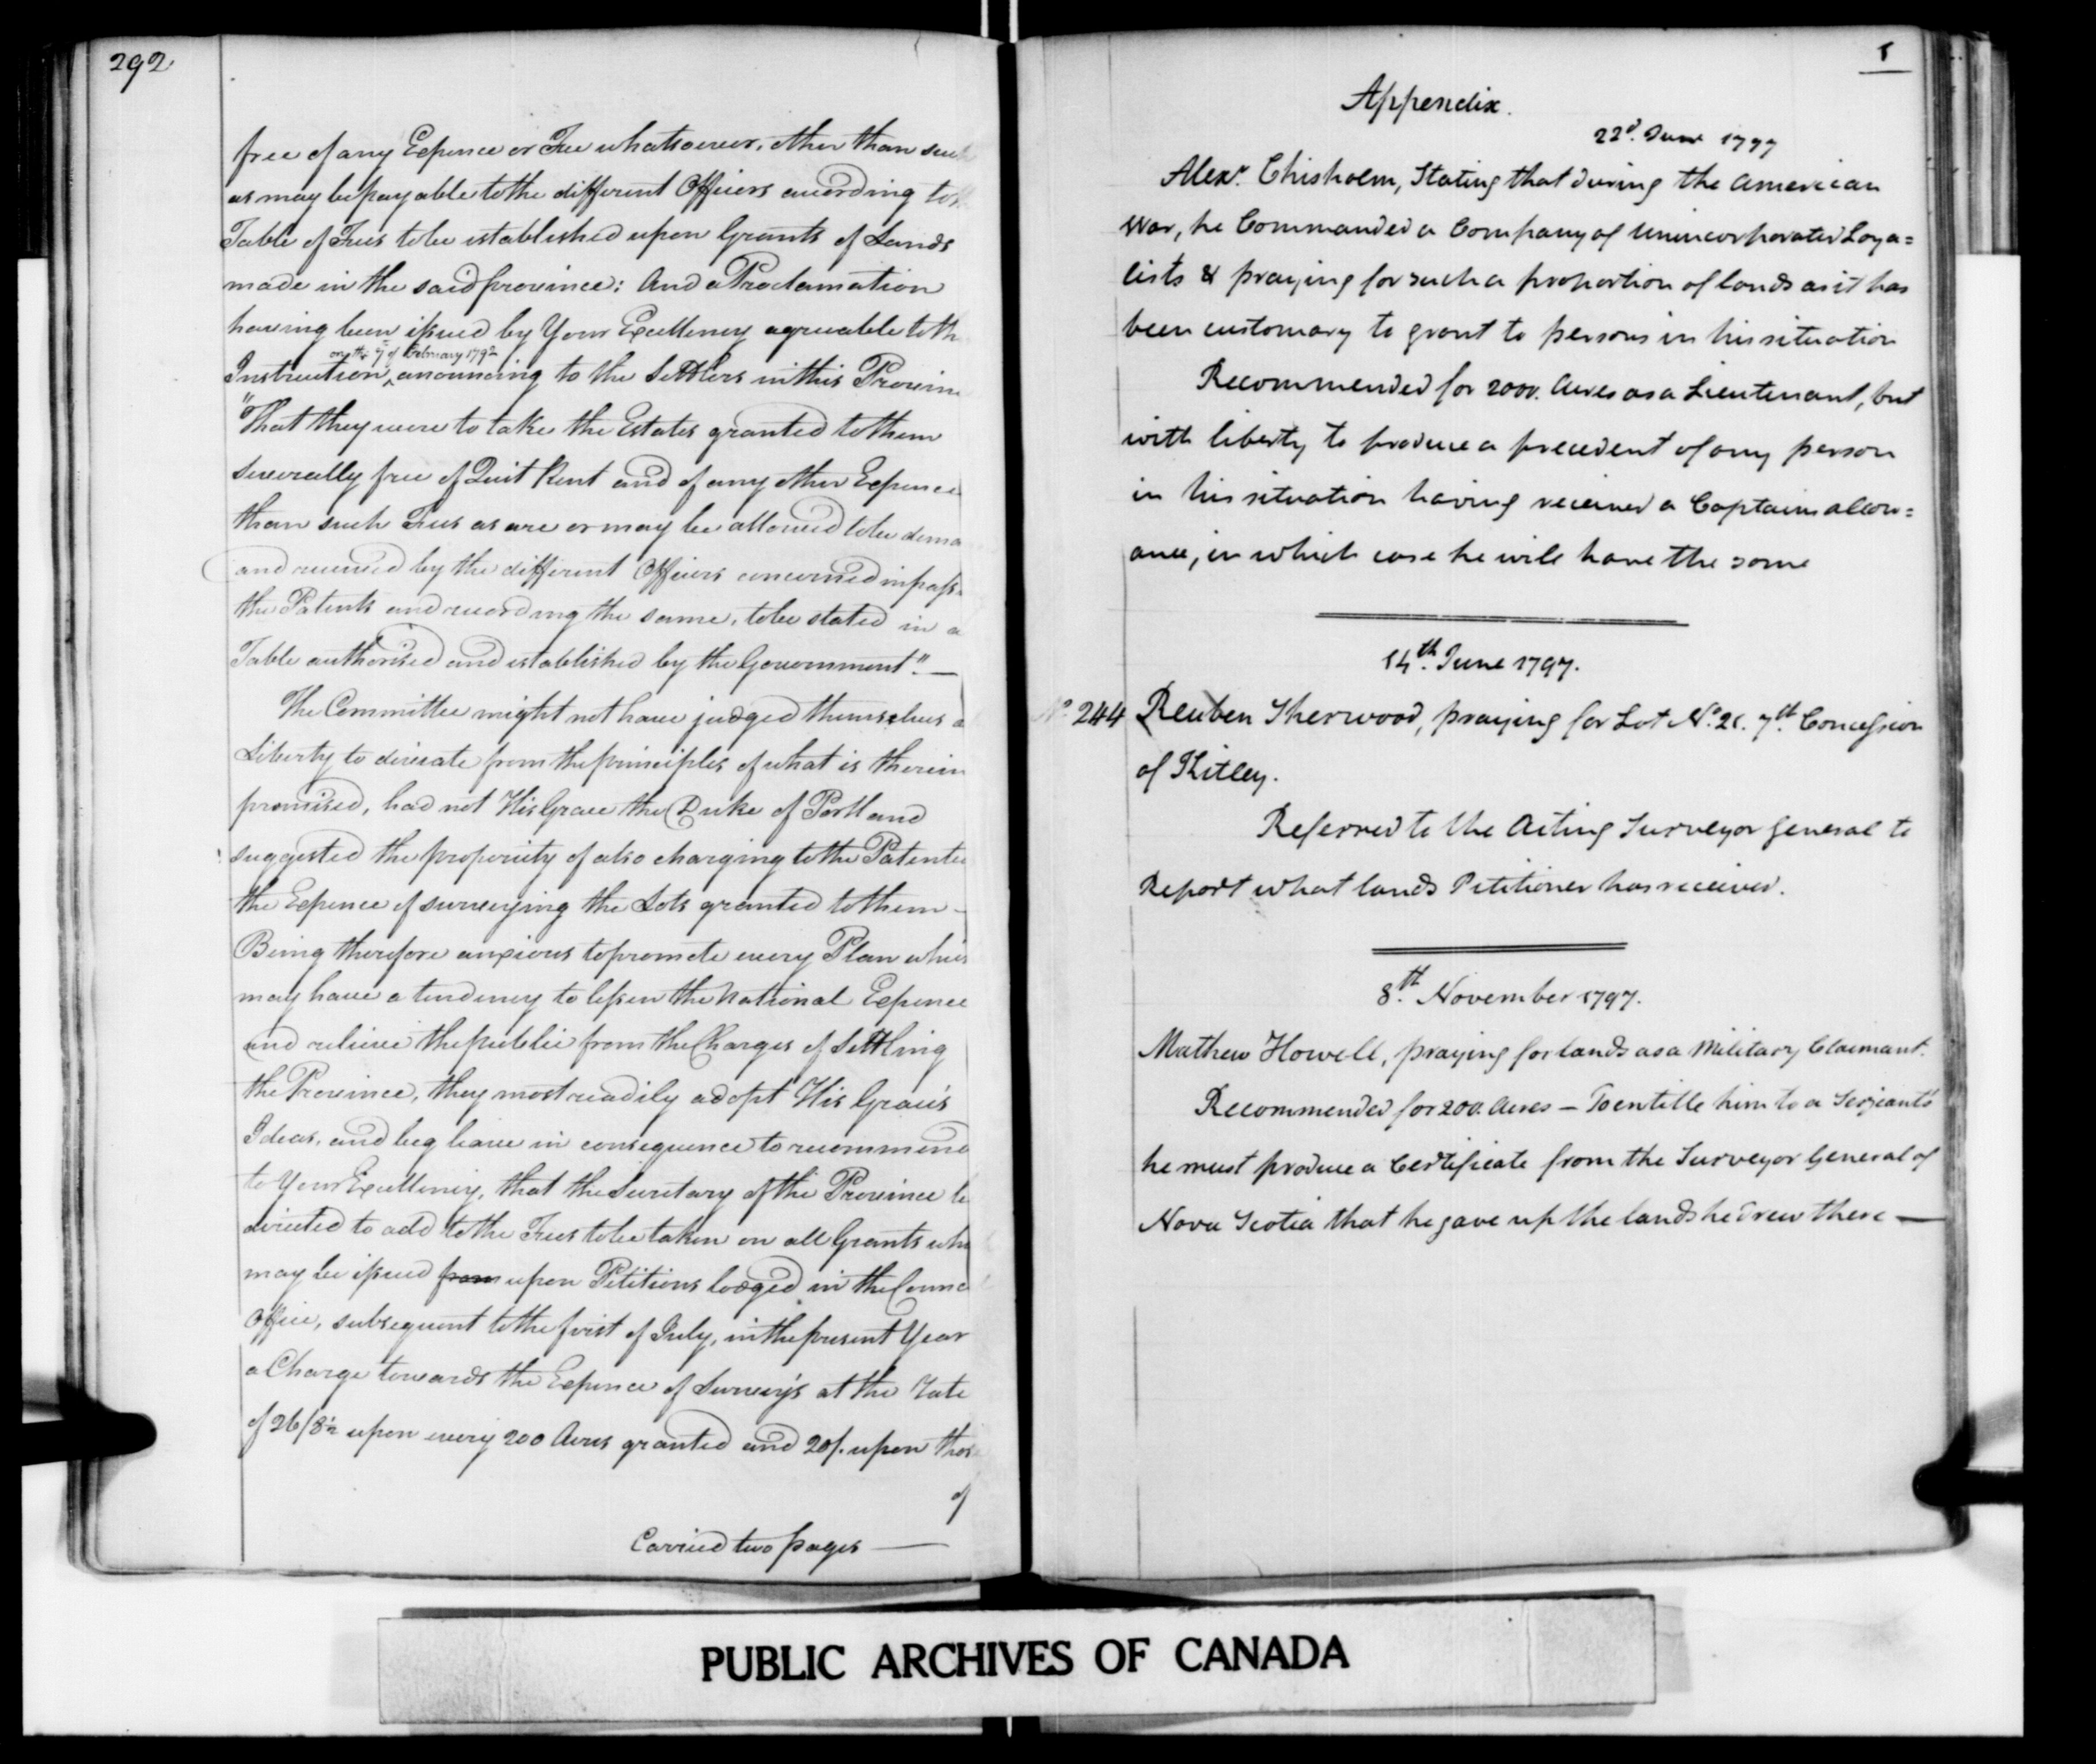 292
free of any Expence or Fee whatsoever, other than such
as may be payable to the different Officers according to the
Table of Fees to be established upon Grants of Lands
made in the said province: And a Proclamation
having been issued by Your Excellency agreeable to th
on the 7th of February 1792
Instruction, anouncing to the Settlers in this Provin
"That they were to take the Estates granted to them
severally free of Quit Rent and of any other Expence
than such Fees as are or may be allowed to be dema
and received by the different Officers concerned in pass
the Patents and recording the same, to be stated in a
Table authorised and established by the Government". —
The Committee might not have judged themselves a
Liberty to deviate from the principles of what is therein
promised, had not His Grace the Duke of Portland
suggested the propriety of also charging to the Patentee
the Expence of surveying the Lots granted to them -
Being therefore anxious to promote every Plan whic
may have a tendency to lessen the National Expence
and relieve the public from the Charges of Settling
the Province, they most readily adopt His Grace's
Ideas, and beg leave in consequence to recommend
to Your Excellency, that the Secretary of the Province be
directed to add to the Fees to be taken on all Grants whi
may be issued from upon Petitions lodged in the Counc
Office, subsequent to the first of July, in the present Year
a Charge towards the Expence of Survey's at the rate
of 26/8½ upon every 200 Acres granted and 20/. upon thos
of
Carried two pages —
1
Appendix.
22d. June 1797
Alexr. Chisholm, Stating that during the American
War, he Commanded a Company of Unincorporated Loya=
lists & praying for such a proportion of lands as it has
been customary to grant to persons in his situation
Recommended for 2000. Acres as a Lieutenant, but
with liberty to produce a precedent of any person
in his situation having received a Captains allow=
ance, in which case he will have the same
14th. June 1797.
No 244 Reuben Sherwood, praying for Lot No. 21. 7th. Concession
of Kitley.
Referred to the Acting Surveyor General to
Report what lands Petitioner has received.
8th. November 1797.
Mathew Howell, praying for lands as a Military Claimant.
Recommended for 200. Acres — To entitle him to a Serjeant's
he must produce a Certificate from the Surveyor General of
Nova Scotia that he gave up the lands he drew there —
PUBLIC ARCHIVES OF CANADA